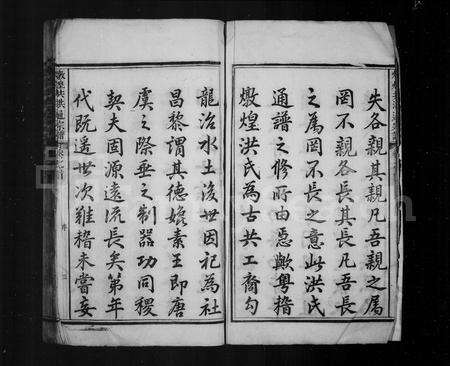 失各親其親凡吾親之属
罔不親各長其長凡吾長
之属罔不長之意此洪氏
通譜之修所由歟粤稽
燉煌洪氏為古共工裔勾
龍治水土後世因祀為社
昌黎謂其德媲素王即唐
虞之際垂之制器功同稷
契夫固源遠流長矣第年
代既遥世次難稽未嘗妄
序